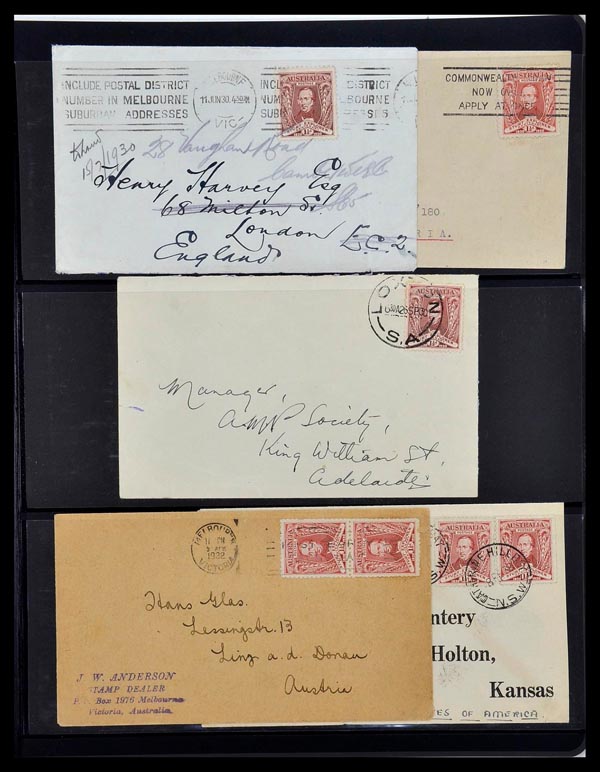 INCLUDE POSTAL DISTRICT
NUMBER IN MELBOURNE
SUBURBAN ADDRESSES
11 JUN 30
VIC
AUSTRALIA
DISTRICT
MELBOURNE
ADDRESSES
15/7/1930
28
Road
Henry Harvey Esq
68 Milton St.
London E.C.2.
England
COMMONWEALTH
NOW
APPLY AT ONCE
/180
RIA.
S.A
AUSTRALIA
Manager,
AMP Society,
King William St,
Adelaide
MELBOURNE
VICTORIA
Hans Glas.
Lessingstr. 13
Linz a. d. Donau
Austria
J. W. ANDERSON
STAMP DEALER
P.O. Box 1976 Melbourne
Victoria, Australia
AUSTRALIA
AUSTRALIA
CATHERINE HILL
N.S.W
ntery
Holton,
Kansas
ES OF AMERICA.